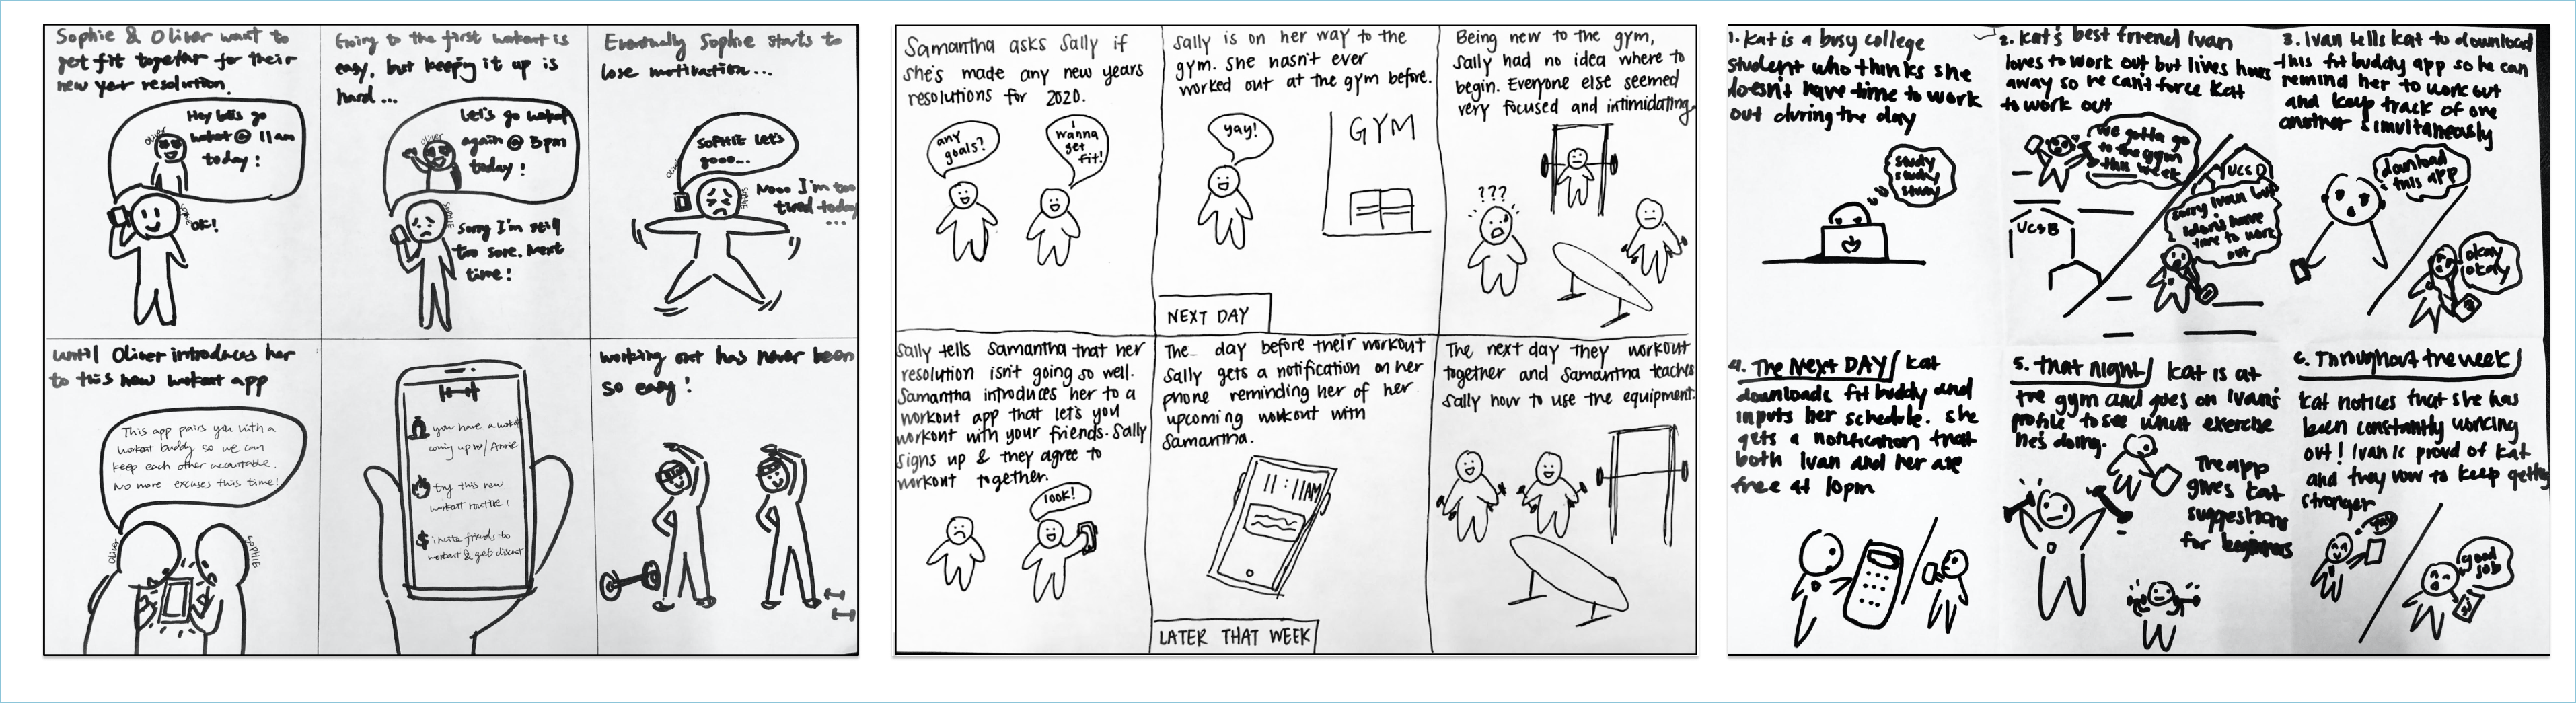 Sophie & Oliver want to
get fit together for their
new year resolution.
Hey let's go
workout @ 11am
today!
Oliver
Sophie
OK!
Going to the first workout is
easy, but keeping it up is
hard...
Let's go workout
again @ 3pm
today!
Oliver
Sophie
Sorry I'm still
too sore. Next
time!
Eventually Sophie starts to
lose motivation...
SOPHIE LET'S
gooo...
Oliver
Sophie
Nooo I'm too
tired today
...
until Oliver introduces her
to this new workout app
This app pairs you with a
workout buddy so we can
keep each other accountable.
No more excuses this time!
Oliver
SOPHIE
you have a workout
coming up w/ Annie
try this new
workout routine!
$ invite friends to
workout & get discount
working out has never been
so easy!
Samantha asks Sally if
she's made any new years
resolutions for 2020.
any
goals?
I
wanna
get
fit!
Sally is on her way to the
gym. She hasn't ever
worked out at the gym before.
yay!
GYM
NEXT DAY
Being new to the gym,
Sally had no idea where to
begin. Everyone else seemed
very focused and intimidating
???
Sally tells Samantha that her
resolution isn't going so well.
Samantha introduces her to a
workout app that let's you
workout with your friends. Sally
signs up & they agree to
workout together.
look!
The day before their workout
Sally gets a notification on her
phone reminding her of her
upcoming workout with
Samantha.
11:11AM
LATER THAT WEEK
The next day they workout
together and Samantha teaches
Sally how to use the equipment.
1. Kat is a busy college
student who thinks she
doesn't have time to work
out during the day
study
study
study
2. Kat's best friend Ivan
loves to work out but lives hours
away so he can't force Kat
to work out
we gotta go
to the gym
this week
UCSB
UCSD
sorry Ivan but
I don't have
time to work
out
3. Ivan tells Kat to download
this fit buddy app so he can
remind her to work out
and keep track of one
another simultaneously
download
this app
okay
okay
4. The NEXT DAY/ Kat
downloads fit buddy and
inputs her schedule. She
gets a notification that
both Ivan and her are
free at 10pm
5. That night/ Kat is at
the gym and goes on Ivan's
profile to see what exercise
he's doing.
The app
gives Kat
suggestions
for beginners
6. Throughout the week/
Kat notices that she has
been constantly working
out! Ivan is proud of Kat
and they vow to keep getting
stronger
yay
good
job